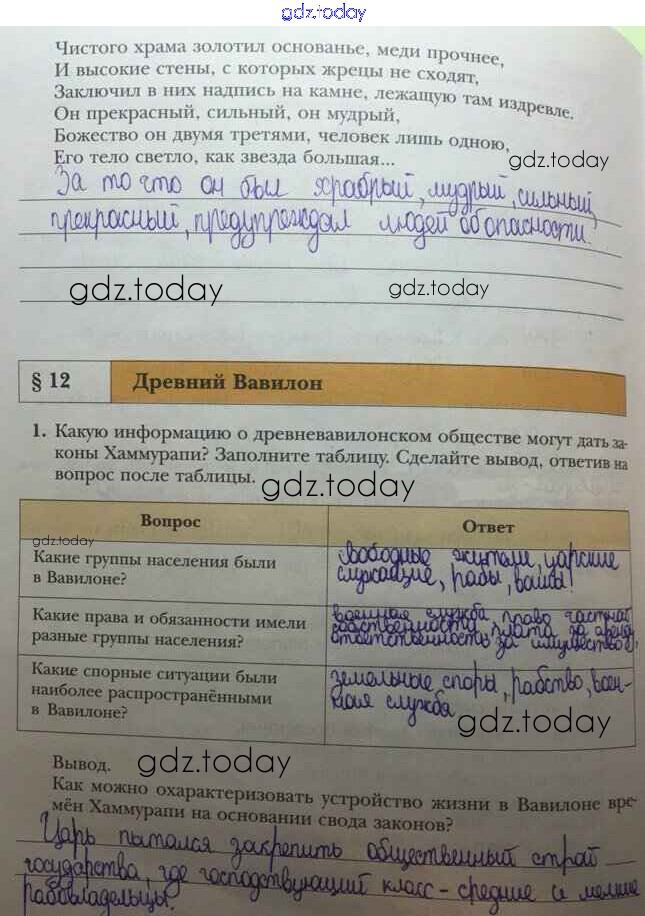 gdz.today
Чистого храма золотил основанье, меди прочнее,
И высокие стены, с которых жрецы не сходят,
Заключил в них надпись на камне, лежащую там издревле.
Он прекрасный, сильный, он мудрый,
Божество он двумя третями, человек лишь одною,
Его тело светло, как звезда большая...
gdz.today
За то что он был храбрый, мудрый, сильный,
прекрасный, предупреждал людей об опасности.
gdz.today
gdz.today
§ 12
Древний Вавилон
1. Какую информацию о древневавилонском обществе могут дать за-
коны Хаммурапи? Заполните таблицу. Сделайте вывод, ответив на
вопрос после таблицы.
gdz.today
Вопрос
Ответ
gdz.today
Какие группы населения были
в Вавилоне?
Свободные жители, царские
служащие, рабы,
Какие права и обязанности имели
разные группы населения?
военная служба, право частной
собственности, плата за аренду,
ответственность за имущество
Какие спорные ситуации были
наиболее распространёнными
в Вавилоне?
земельные споры, рабство, воен-
ная служба
gdz.today
Вывод.
gdz.today
Как можно охарактеризовать устройство жизни в Вавилоне вре-
мён Хаммурапи на основании свода законов?
Царь пытался закрепить общественный строй
государства, где господствующий класс - средние и мелкие
рабовладельцы.